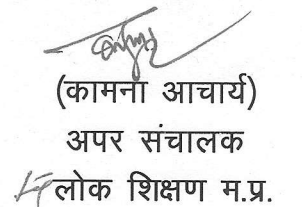 (कामना आचार्य)
अपर संचालक
लोक शिक्षण म.प्र.